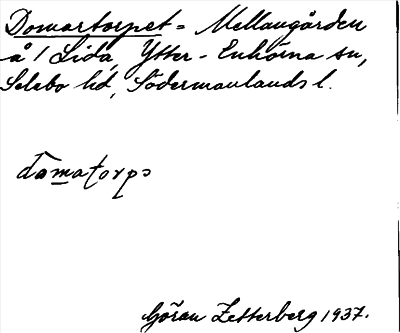 Domartorpet = Mellangården
å / Lida, Ytter-Enhörna sn,
Selebo hd, Södermanlands l.
domatorpɔ
Göran Zetterberg 1937.